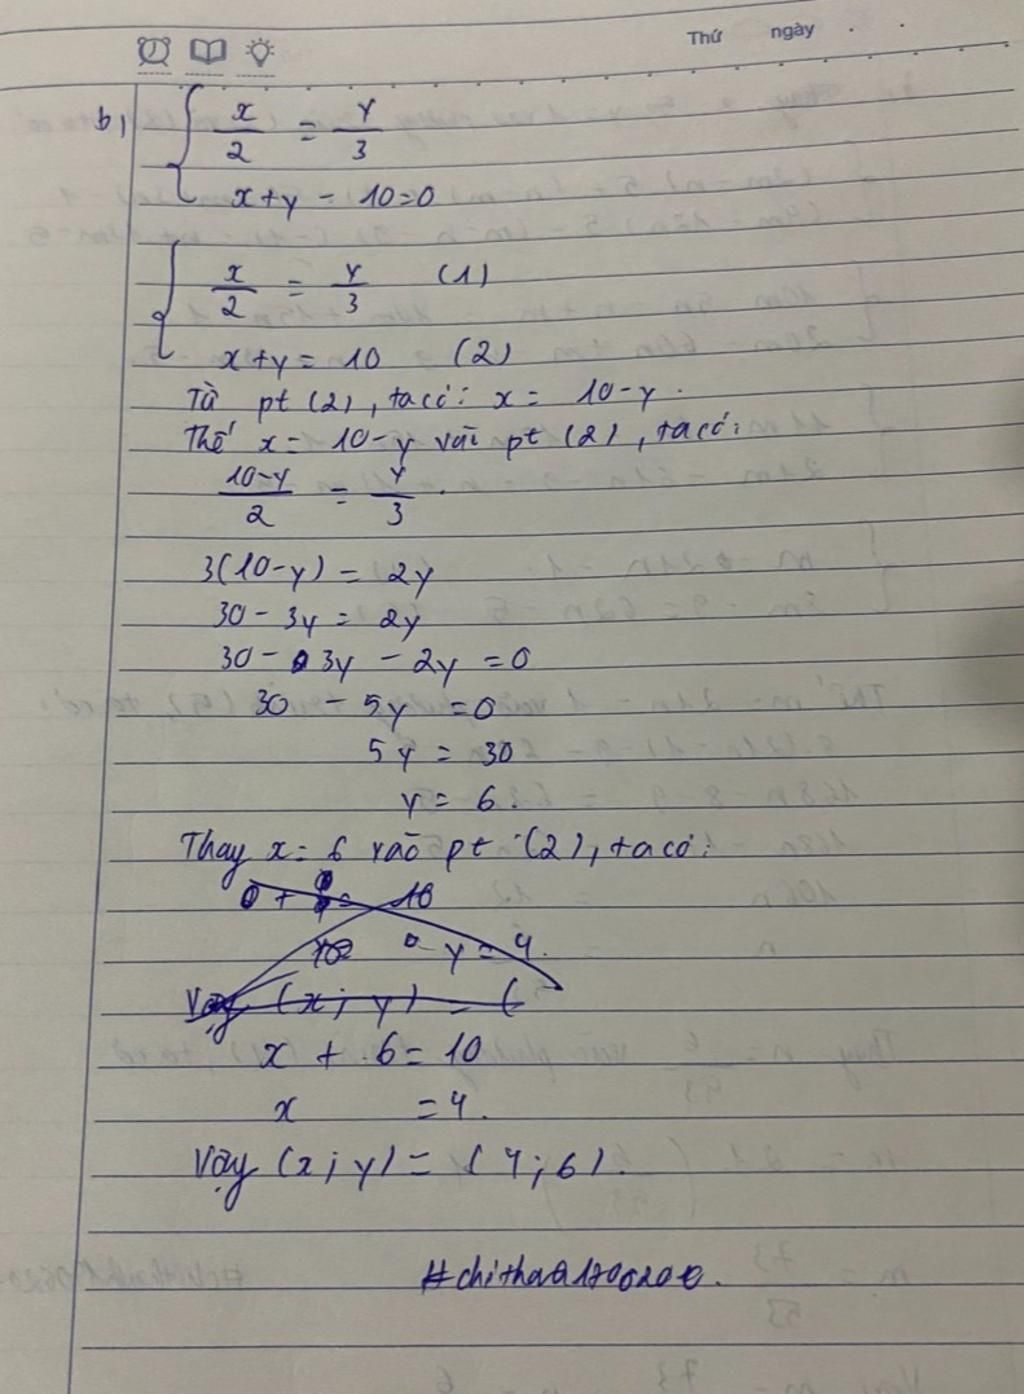 Thứ ngày
b, { x/2 = y/3
x+y - 10=0
{ x/2 = y/3 (1)
x+y = 10 (2)
Từ pt (2), ta có: x = 10-y.
Thế x = 10-y vào pt (2), ta có:
10-y/2 = y/3.
3(10-y) = 2y
30 - 3y = 2y
30 - 3y - 2y = 0
30 - 5y = 0
5y = 30
y = 6.
Thay x = 6 vào pt (2), ta có:
y = 4.
Vậy (x; y) = (
x + 6 = 10
x = 4.
Vậy (x; y) = (4; 6).